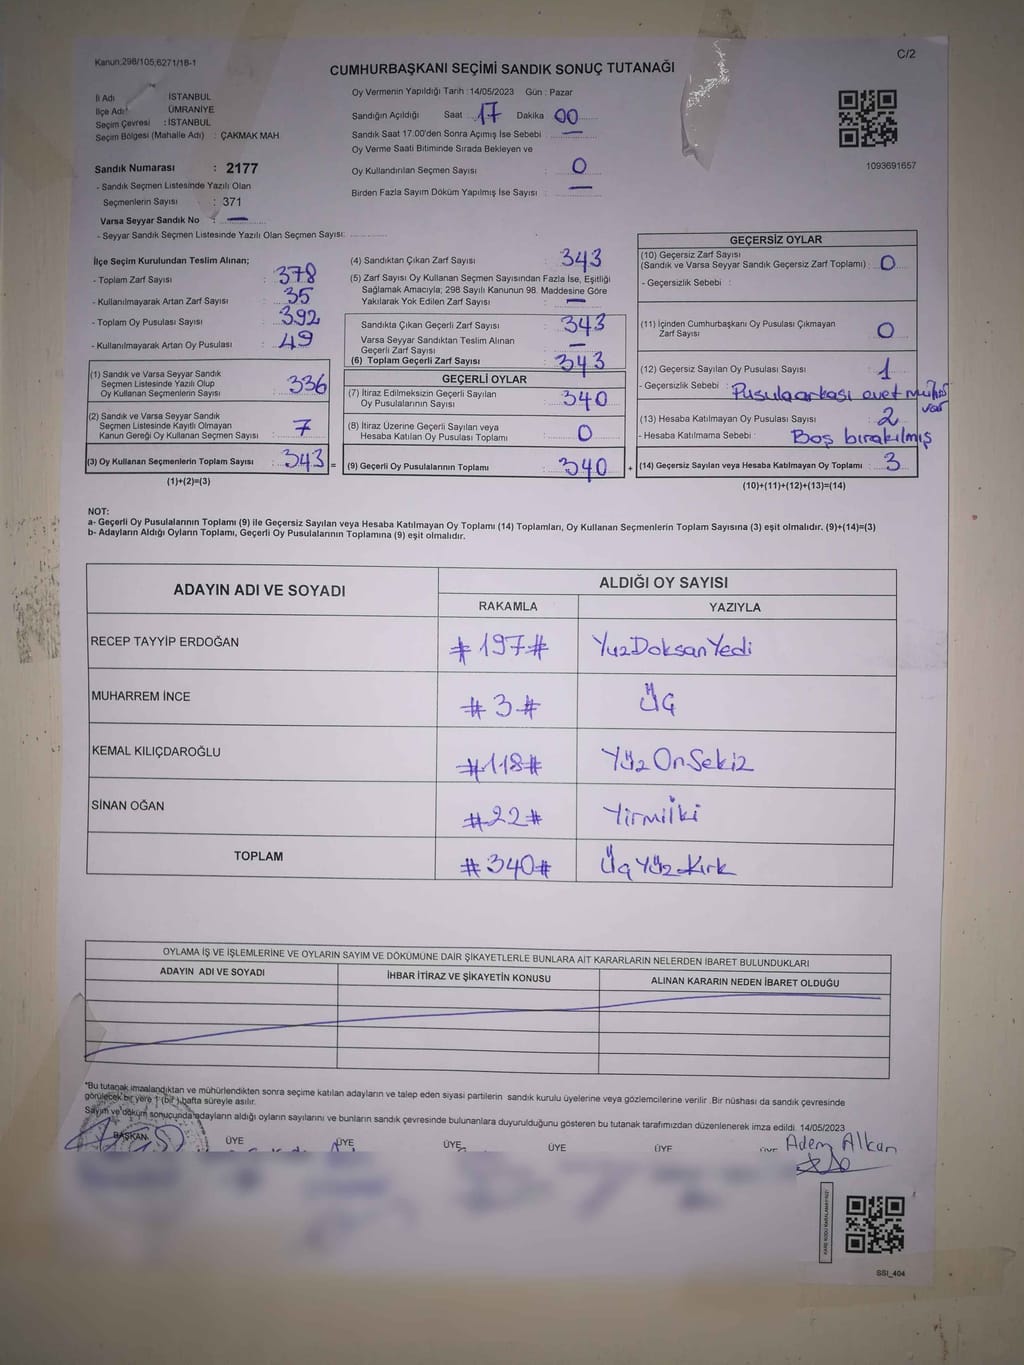 Kanun:298/105;6271/18-1
C/2
CUMHURBAŞKANI SEÇİMİ SANDIK SONUÇ TUTANAĞI
İl Adı : İSTANBUL
İlçe Adı : ÜMRANİYE
Seçim Çevresi : İSTANBUL
Seçim Bölgesi (Mahalle Adı) : ÇAKMAK MAH
Sandık Numarası : 2177
- Sandık Seçmen Listesinde Yazılı Olan
Seçmenlerin Sayısı : 371
Varsa Seyyar Sandık No : —
- Seyyar Sandık Seçmen Listesinde Yazılı Olan Seçmen Sayısı:
Oy Vermenin Yapıldığı Tarih : 14/05/2023 Gün : Pazar
Sandığın Açıldığı Saat 17 Dakika 00
Sandık Saat 17.00'den Sonra Açımış İse Sebebi : —
Oy Verme Saati Bitiminde Sırada Bekleyen ve
Oy Kullandırılan Seçmen Sayısı : 0
Birden Fazla Sayım Döküm Yapılmış İse Sayısı : —
1093691657
İlçe Seçim Kurulundan Teslim Alınan;
- Toplam Zarf Sayısı : 378
- Kullanılmayarak Artan Zarf Sayısı : 35
- Toplam Oy Pusulası Sayısı : 392
- Kullanılmayarak Artan Oy Pusulası : 49
(1) Sandık ve Varsa Seyyar Sandık
Seçmen Listesinde Yazılı Olup
Oy Kullanan Seçmenlerin Sayısı : 336
(2) Sandık ve Varsa Seyyar Sandık
Seçmen Listesinde Kayıtlı Olmayan
Kanun Gereği Oy Kullanan Seçmen Sayısı : 7
(3) Oy Kullanan Seçmenlerin Toplam Sayısı : 343 =
(1)+(2)=(3)
(4) Sandıktan Çıkan Zarf Sayısı : 343
(5) Zarf Sayısı Oy Kullanan Seçmen Sayısından Fazla İse, Eşitliği
Sağlamak Amacıyla; 298 Sayılı Kanunun 98. Maddesine Göre
Yakılarak Yok Edilen Zarf Sayısı : —
Sandıkta Çıkan Geçerli Zarf Sayısı : 343
Varsa Seyyar Sandıktan Teslim Alınan
Geçerli Zarf Sayısı : —
(6) Toplam Geçerli Zarf Sayısı : 343
GEÇERLİ OYLAR
(7) İtiraz Edilmeksizin Geçerli Sayılan
Oy Pusulalarının Sayısı : 340
(8) İtiraz Üzerine Geçerli Sayılan veya
Hesaba Katılan Oy Pusulası Toplamı : 0
(9) Geçerli Oy Pusulalarının Toplamı : 340 +
GEÇERSİZ OYLAR
(10) Geçersiz Zarf Sayısı
(Sandık ve Varsa Seyyar Sandık Geçersiz Zarf Toplamı) : 0
- Geçersizlik Sebebi :
(11) İçinden Cumhurbaşkanı Oy Pusulası Çıkmayan
Zarf Sayısı : 0
(12) Geçersiz Sayılan Oy Pusulası Sayısı : 1
- Geçersizlik Sebebi : Pusula arkası evet mührü
var
(13) Hesaba Katılmayan Oy Pusulası Sayısı : 2
- Hesaba Katılmama Sebebi : Boş bırakılmış
(14) Geçersiz Sayılan veya Hesaba Katılmayan Oy Toplamı : 3
(10)+(11)+(12)+(13)=(14)
NOT:
a- Geçerli Oy Pusulalarının Toplamı (9) ile Geçersiz Sayılan veya Hesaba Katılmayan Oy Toplamı (14) Toplamları, Oy Kullanan Seçmenlerin Toplam Sayısına (3) eşit olmalıdır. (9)+(14)=(3)
b- Adayların Aldığı Oyların Toplamı, Geçerli Oy Pusulalarının Toplamına (9) eşit olmalıdır.
ADAYIN ADI VE SOYADI
ALDIĞI OY SAYISI
RAKAMLA YAZIYLA
RECEP TAYYİP ERDOĞAN #197# YuzDoksanYedi
MUHARREM İNCE #3# Üç
KEMAL KILIÇDAROĞLU #118# YüzOnSekiz
SİNAN OĞAN #22# Yirmiİki
TOPLAM #340# ÜçYüzKırk
OYLAMA İŞ VE İŞLEMLERİNE VE OYLARIN SAYIM VE DÖKÜMÜNE DAİR ŞİKAYETLERLE BUNLARA AİT KARARLARIN NELERDEN İBARET BULUNDUKLARI
ADAYIN ADI VE SOYADI İHBAR İTİRAZ VE ŞİKAYETİN KONUSU ALINAN KARARIN NEDEN İBARET OLDUĞU
*Bu tutanak imzalandıktan ve mühürlendikten sonra seçime katılan adayların ve talep eden siyasi partilerin sandık kurulu üyelerine veya gözlemcilerine verilir .Bir nüshası da sandık çevresinde
görülecek bir yere 1 (bir) hafta süreyle asılır.
Sayım ve döküm sonucunda adayların aldığı oyların sayılarını ve bunların sandık çevresinde bulunanlara duyurulduğunu gösteren bu tutanak tarafımızdan düzenlenerek imza edildi. 14/05/2023
BAŞKAN ÜYE ÜYE ÜYE ÜYE ÜYE ÜYE
Adem Alkan
SSI_404